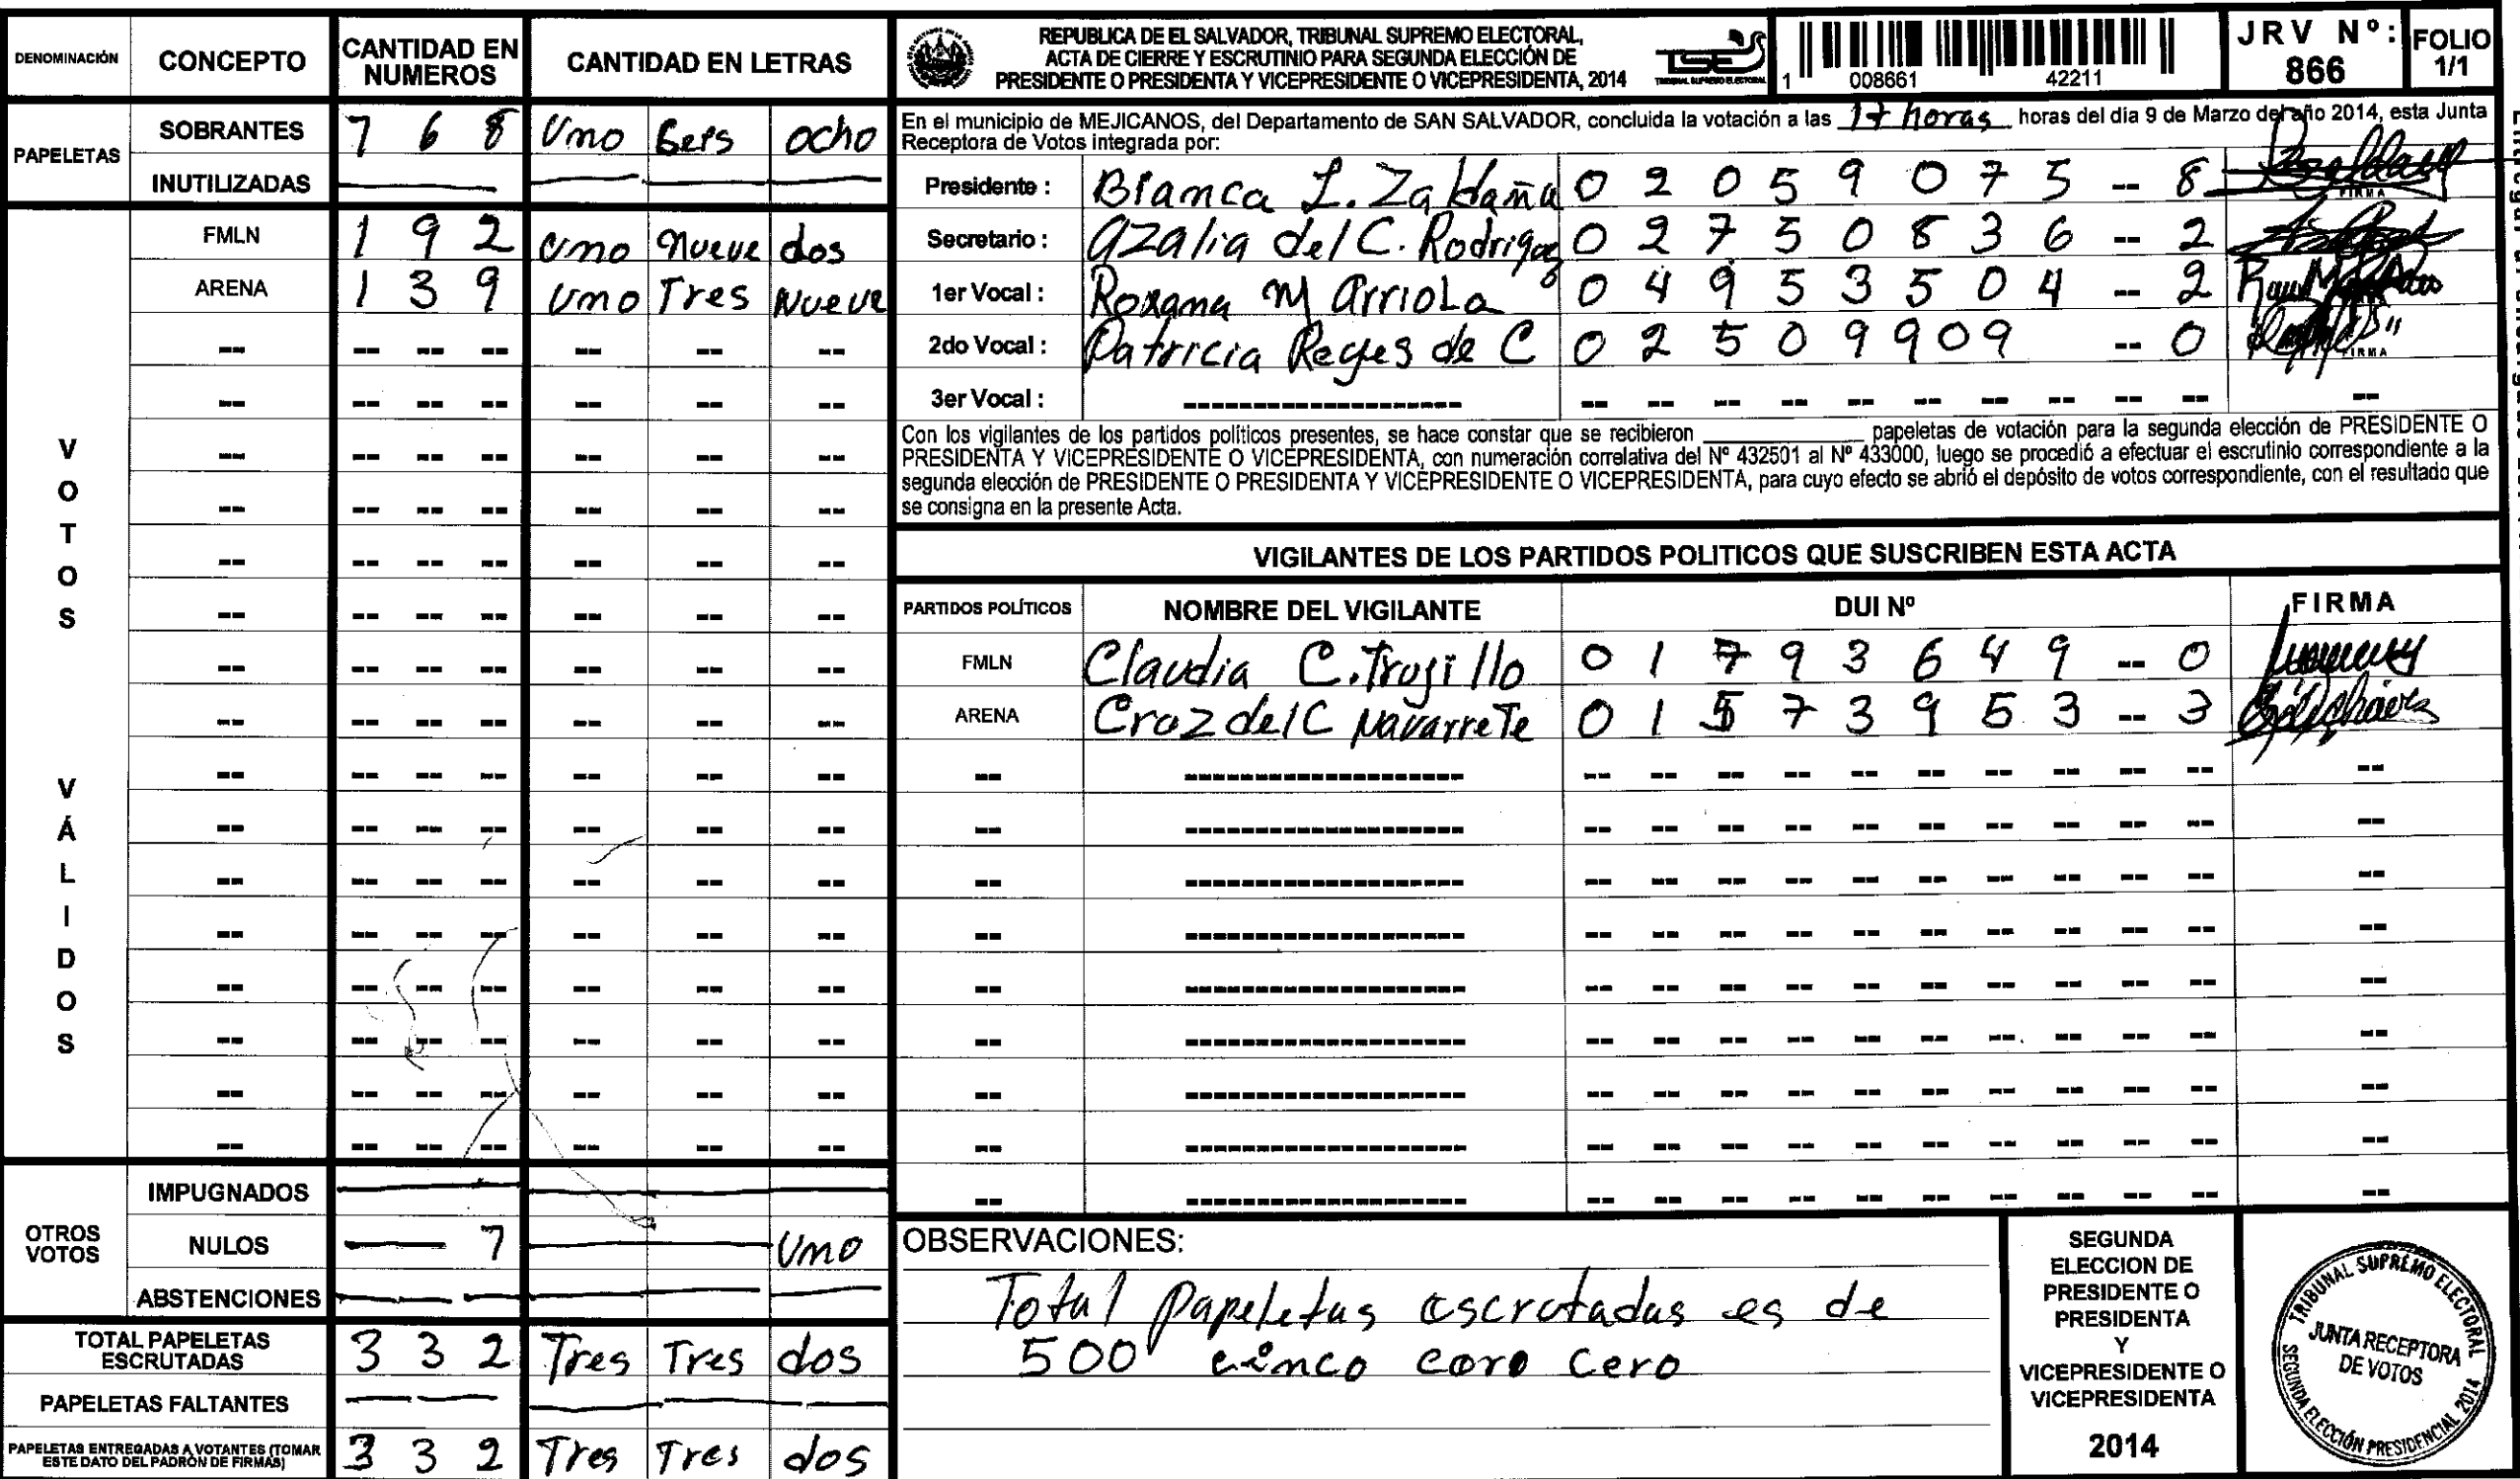 DENOMINACIÓN CONCEPTO CANTIDAD EN NUMEROS CANTIDAD EN LETRAS
PAPELETAS
SOBRANTES 7 6 8 Uno Seis ocho
INUTILIZADAS
VOTOS VÁLIDOS
FMLN 1 9 2 Uno Nueve dos
ARENA 1 3 9 Uno Tres Nueve
OTROS VOTOS
IMPUGNADOS
NULOS 7 Uno
ABSTENCIONES
TOTAL PAPELETAS ESCRUTADAS 3 3 2 Tres Tres dos
PAPELETAS FALTANTES
PAPELETAS ENTREGADAS A VOTANTES (TOMAR ESTE DATO DEL PADRÓN DE FIRMAS) 3 3 2 Tres Tres dos
REPUBLICA DE EL SALVADOR, TRIBUNAL SUPREMO ELECTORAL,
ACTA DE CIERRE Y ESCRUTINIO PARA SEGUNDA ELECCIÓN DE
PRESIDENTE O PRESIDENTA Y VICEPRESIDENTE O VICEPRESIDENTA, 2014
TSE
TRIBUNAL SUPREMO ELECTORAL
1 008661 42211
JRV Nº: 866
FOLIO 1/1
En el municipio de MEJICANOS, del Departamento de SAN SALVADOR, concluida la votación a las 17 horas horas del día 9 de Marzo del año 2014, esta Junta
Receptora de Votos integrada por:
Presidente : Blanca L. Zaldaña 0 2 0 5 9 0 7 5 -- 8 FIRMA
Secretario : Azalia del C. Rodrigez 0 2 7 5 0 8 3 6 -- 2
1er Vocal : Roxana M Arriola 0 4 9 5 3 5 0 4 -- 2
2do Vocal : Patricia Reyes de C 0 2 5 0 9 9 0 9 -- 0 FIRMA
3er Vocal :
Con los vigilantes de los partidos políticos presentes, se hace constar que se recibieron ____ papeletas de votación para la segunda elección de PRESIDENTE O
PRESIDENTA Y VICEPRESIDENTE O VICEPRESIDENTA, con numeración correlativa del Nº 432501 al Nº 433000, luego se procedió a efectuar el escrutinio correspondiente a la
segunda elección de PRESIDENTE O PRESIDENTA Y VICEPRESIDENTE O VICEPRESIDENTA, para cuyo efecto se abrió el depósito de votos correspondiente, con el resultado que
se consigna en la presente Acta.
VIGILANTES DE LOS PARTIDOS POLITICOS QUE SUSCRIBEN ESTA ACTA
PARTIDOS POLÍTICOS NOMBRE DEL VIGILANTE DUI Nº FIRMA
FMLN Claudia C. Trujillo 0 1 7 9 3 6 4 9 -- 0
ARENA Cruz del C Navarrete 0 1 5 7 3 9 5 3 -- 3
OBSERVACIONES:
Total papeletas escrutadas es de
500 cinco cero cero
SEGUNDA
ELECCION DE
PRESIDENTE O
PRESIDENTA
Y
VICEPRESIDENTE O
VICEPRESIDENTA
2014
TRIBUNAL SUPREMO ELECTORAL
JUNTA RECEPTORA
DE VOTOS
SEGUNDA ELECCIÓN PRESIDENCIAL 2014